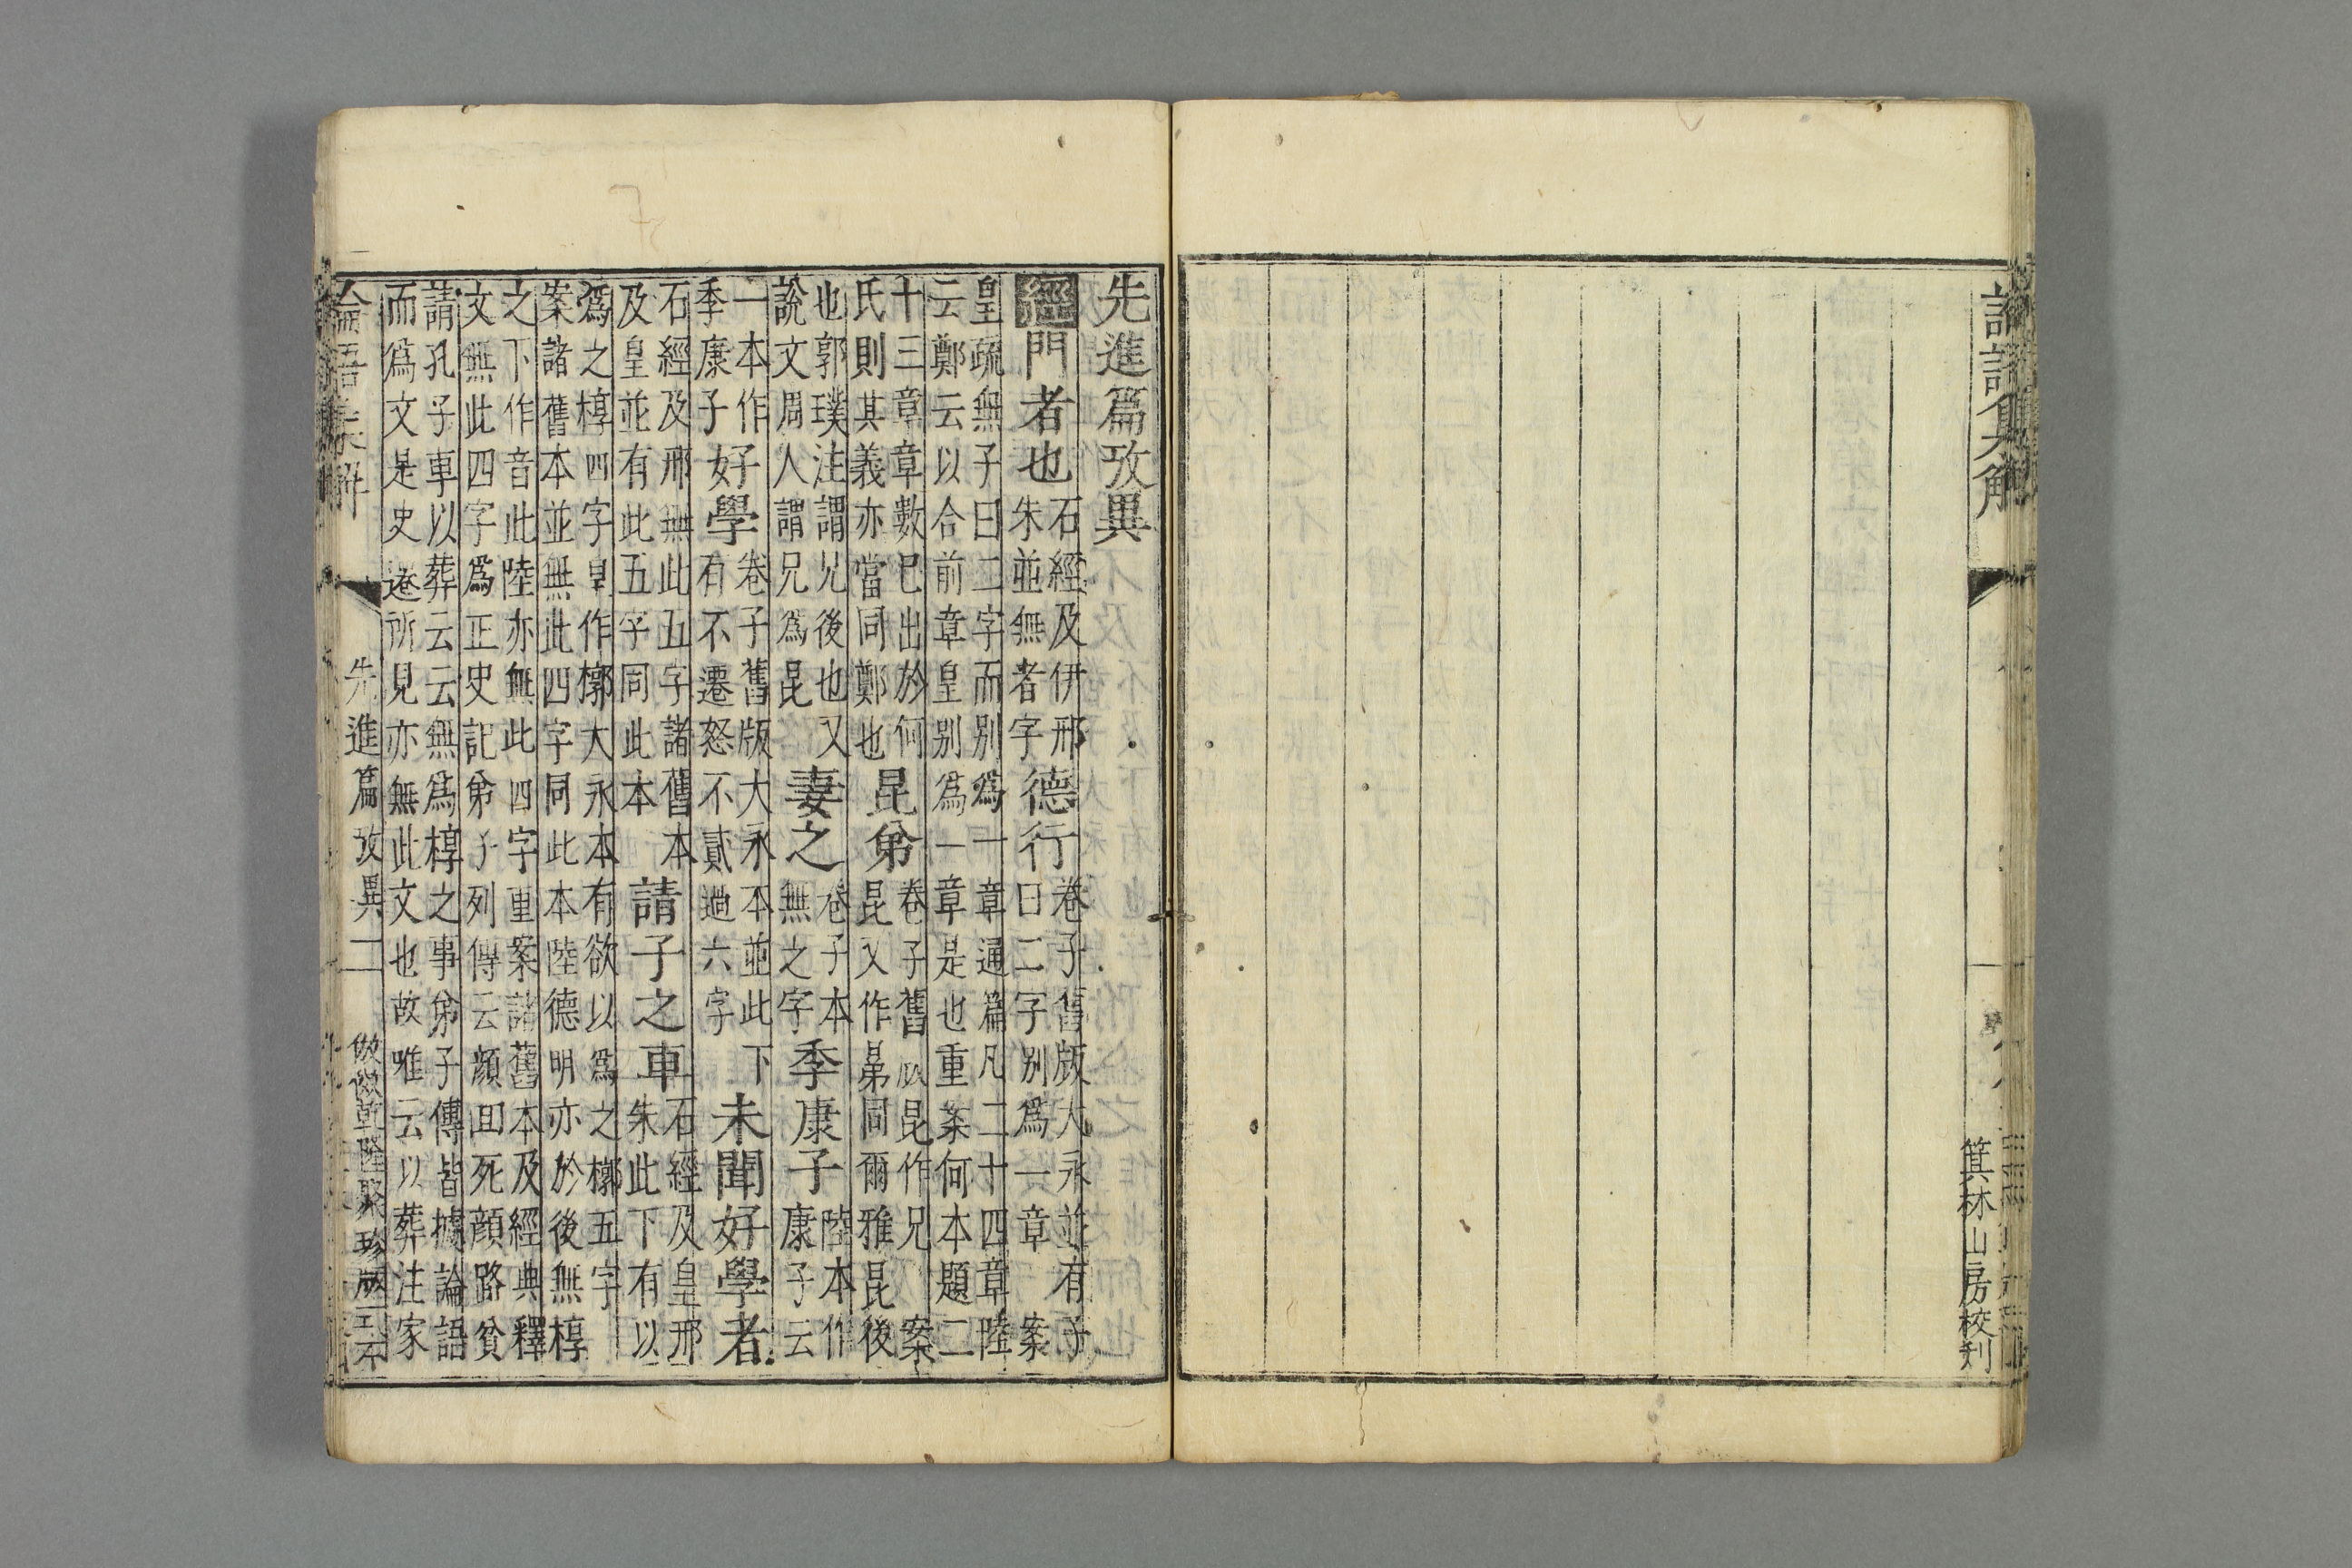 論語集解
箕林山房校刋
先進篇攷異
經門者也石經及伊邢朱並無者字德行卷子舊版大永並有子曰二字别爲一章案
皇疏無子曰二字而别爲一章通篇凡二十四章陸云鄭云以合前章皇别爲一章是也重案何本題二
十三章章數已出於何氏則其義亦當同鄭也昆弟卷子舊版昆作兄昆又作弟同爾雅昆後案
也郭璞注謂兄後也又說文周人謂兄爲昆妻之卷子本無之字季康子陸本作康子云
一本作季康子好學卷子舊版大永本並此下有不遷怒不貳過六字未聞好學者
石經及邢無此五字諸舊本及皇並有此五字同此本請子之車石經及皇邢朱此下有以
爲之椁四字皇作槨大永本有欲以爲之槨五字案諸舊本並無此四字同此本陸德明亦於後無椁
之下作音此陸亦無此四字重案諸舊本及經典釋文無此四字爲正史記弟子列傳云顔回死顔路貧
請孔子車以葬云云無爲椁之事弟子傳皆據論語而爲文是史遷所見亦無此文也故唯云以葬注家
論語集解
先進篇攷異
一
倣乾隆聚珍版